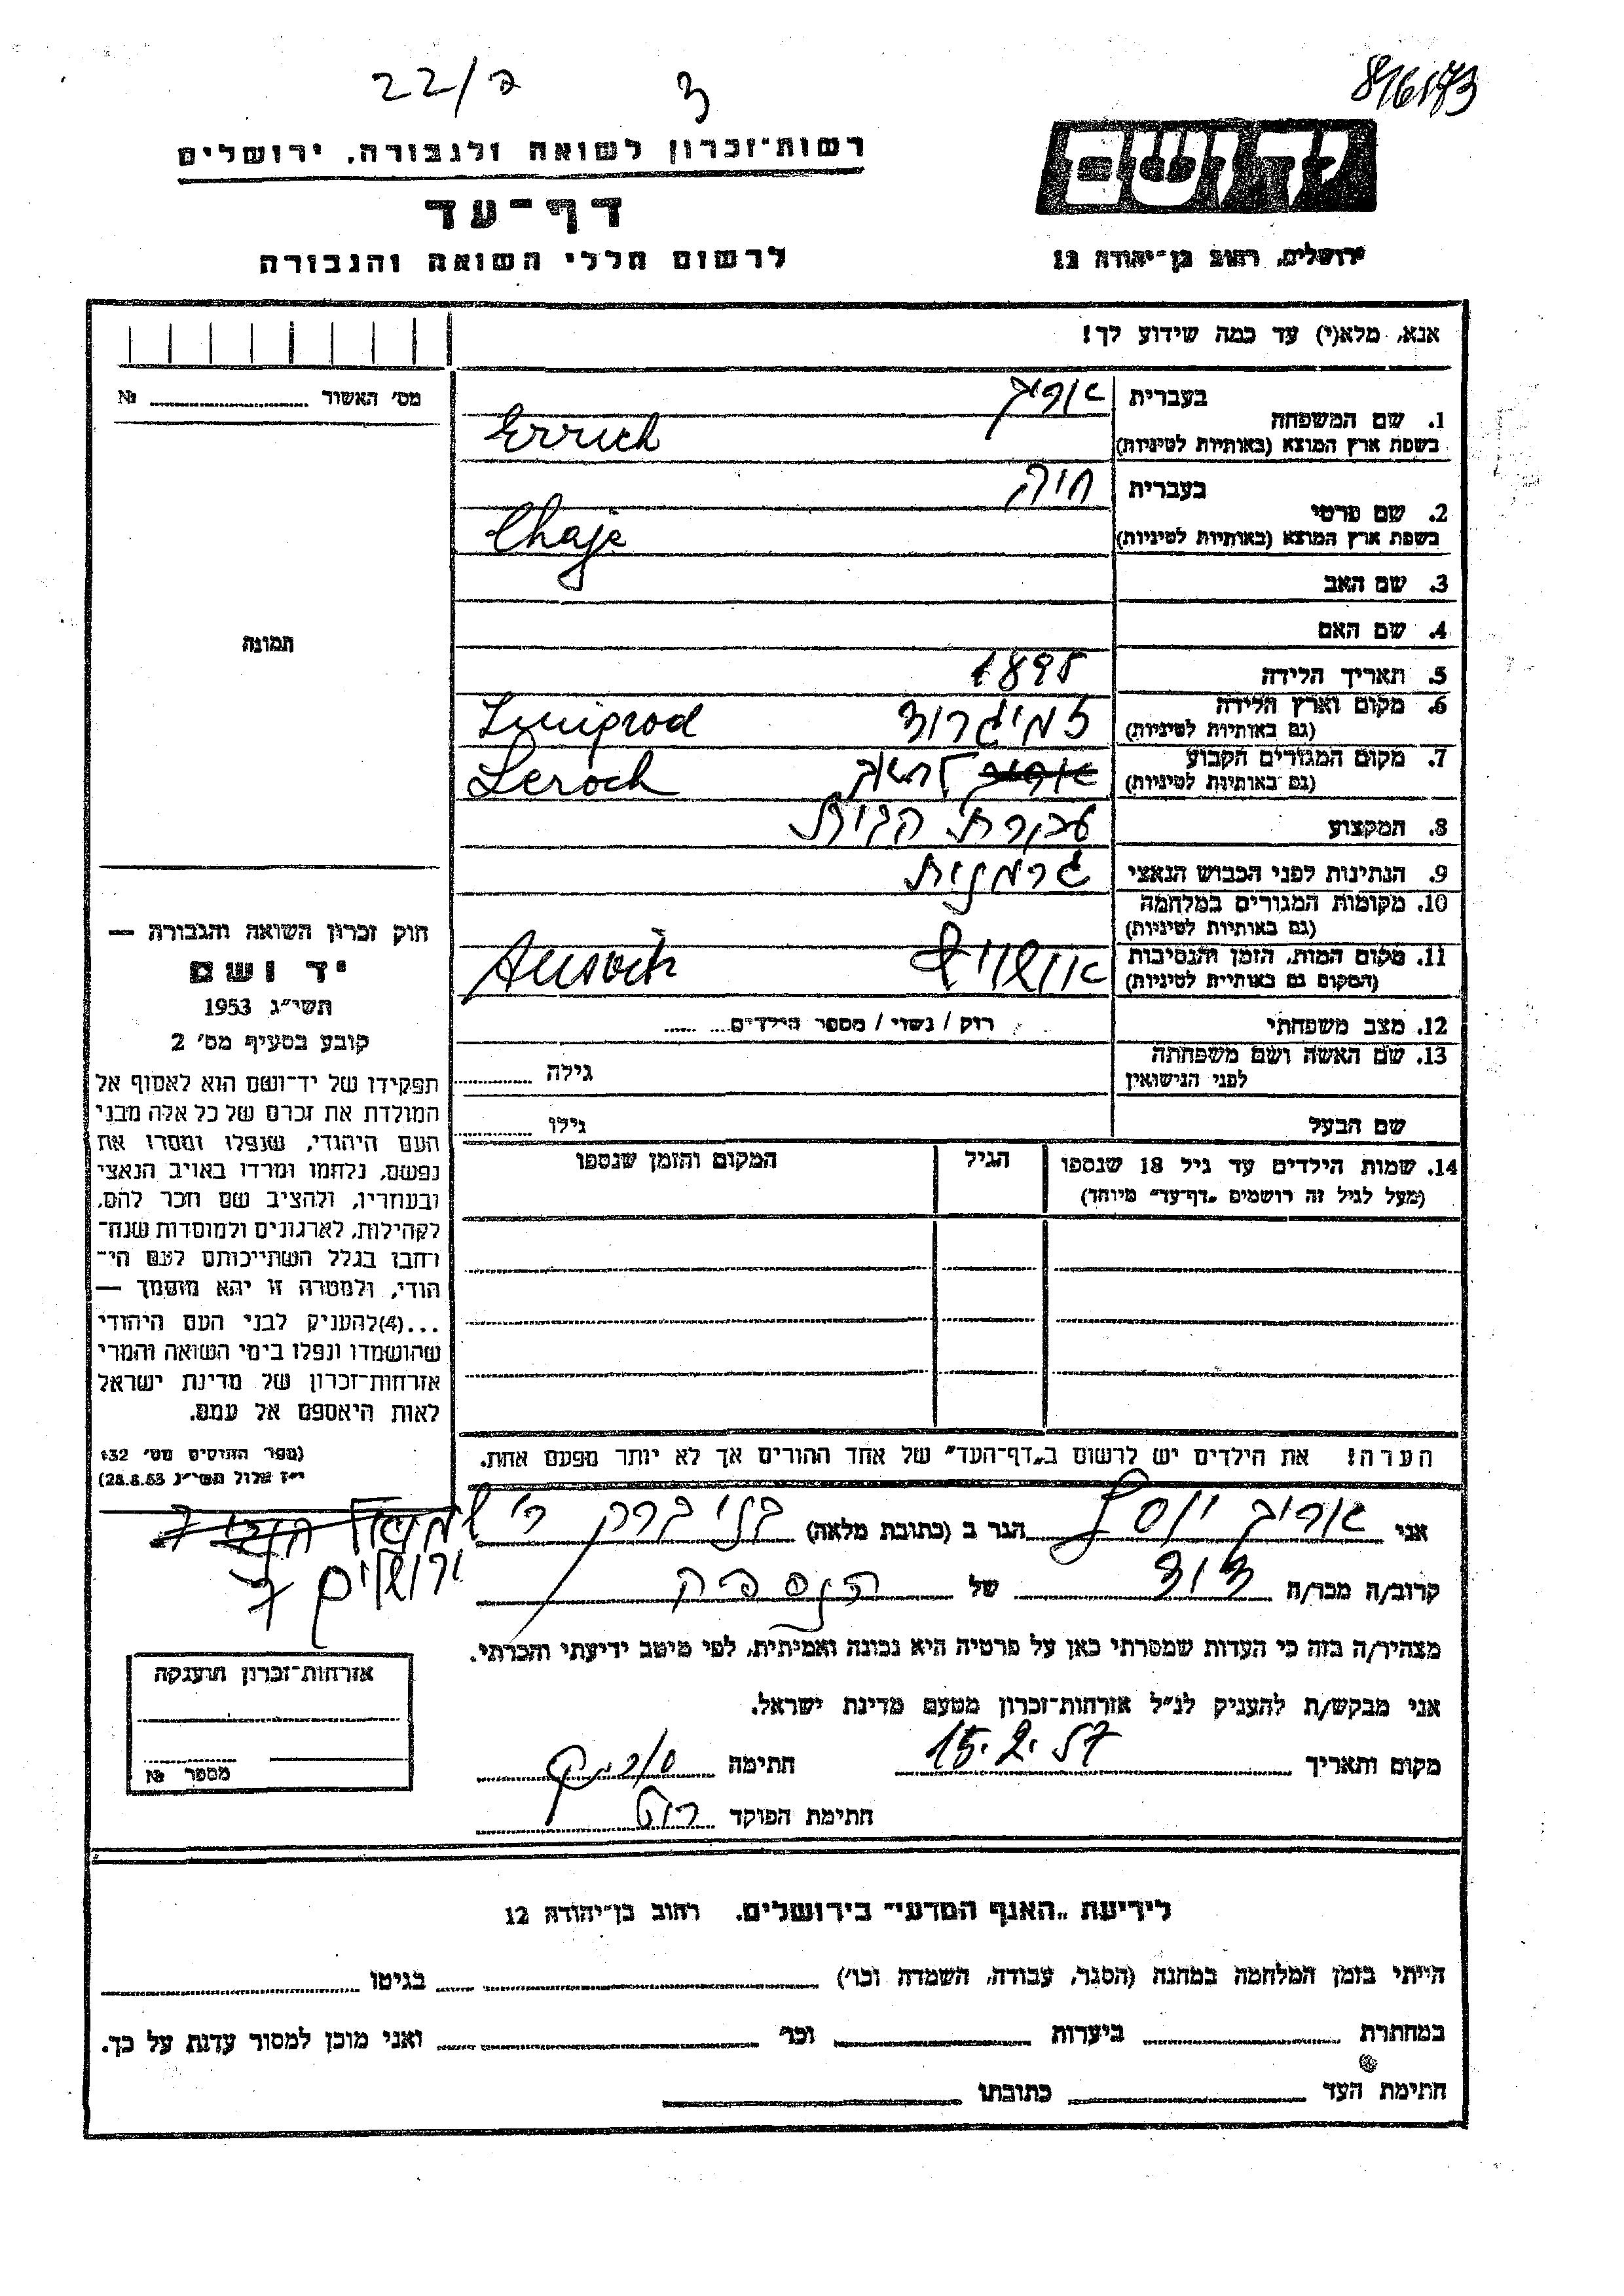 22/7 3
816173
רשות־זכרון לשואה ולגבורה, ירושלים
יד ושם
דף־עד
לרשום חללי השואה והגבורה
ירושלים, רחוב בן־יהודה 12
אנא, מלא(י) עד כמה שידוע לך!
מס' האשור № 
תמונה
1. שם המשפחה
בעברית
בשפת ארץ המוצא (באותיות לטיניות) Errich
2. שם פרטי
בעברית חיה
בשפת ארץ המוצא (באותיות לטיניות) Chaje
3. שם האב
4. שם האם
5. תאריך הלידה 1895
6. מקום וארץ הלידה זמיגרוד
(גם באותיות לטיניות) Zmiprod
7. מקום המגורים הקבוע
(גם באותיות לטיניות) Leroch
8. המקצוע עקרת הבית
9. הנתינות לפני הכבוש הנאצי גרמנית
10. מקומות המגורים במלחמה
(גם באותיות לטיניות)
11. מקום המות, הזמן והנסיבות אושויץ
(המקום גם באותיות לטיניות) Ausvich
12. מצב משפחתי רוק / נשוי / מספר הילדים
13. שם האשה ושם משפחתה גילה
לפני הנישואין
שם הבעל גילו
14. שמות הילדים עד גיל 18 שנספו הגיל המקום והזמן שנספו
(מעל לגיל זה רושמים "דף־עד" מיוחד)
הערה! את הילדים יש לרשום ב"דף־העד" של אחד ההורים אך לא יותר מפעם אחת.
חוק זכרון השואה והגבורה —
יד ושם
תשי"ג 1953
קובע בסעיף מס' 2
תפקידו של יד־ושם הוא לאסוף אל
המולדת את זכרם של כל אלה מבני
העם היהודי, שנפלו ומסרו את
נפשם, נלחמו ומרדו באויב הנאצי
ובעוזריו, ולהציב שם וזכר להם,
לקהילות, לארגונים ולמוסדות שנח־
רבו בגלל השתייכותם לעם הי־
הודי, ולמטרה זו יהא מוסמך —
...(4)להעניק לבני העם היהודי
שהושמדו ונפלו בימי השואה והמרי
אזרחות־זכרון של מדינת ישראל
לאות היאספם אל עמם.
(ספר החוקים מס' 132
י"ז אלול תשי"ג 28.8.53)
אני אריך יוסף הגר ב (כתובת מלאה) בני ברק
ירושלים
קרוב/ה מכר/ה דוד של הנספה
מצהיר/ה בזה כי העדות שמסרתי כאן על פרטיה היא נכונה ואמיתית, לפי מיטב ידיעתי והכרתי.
אני מבקש/ת להעניק לנ"ל אזרחות־זכרון מטעם מדינת ישראל.
מקום ותאריך 15.2.57 חתימה
חתימת הפוקד
אזרחות־זכרון הוענקה
מספר №
לידיעת "האגף המדעי" בירושלים, רחוב בן־יהודה 12
הייתי בזמן המלחמה במחנה (הסגר, עבודה, השמדה וכו') בגיטו
במחתרת ביערות וכו' ואני מוכן למסור עדות על כך.
חתימת העד כתובתו